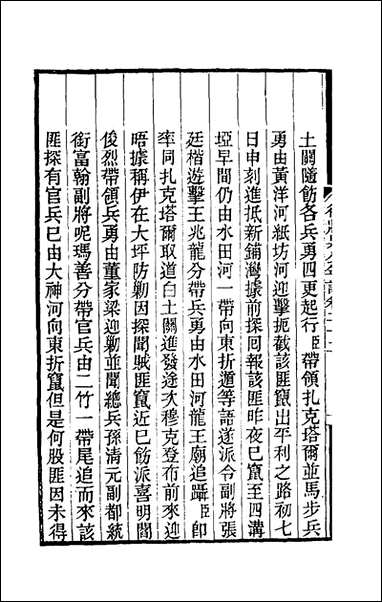 土關隨飭各兵勇四更起行臣帶領扎克塔爾並馬步兵
勇由黃洋河紙坊河迎擊扼截該匪竄出平利之路初七
日申刻進抵新鋪灣據前探囘報該匪昨夜已竄至四溝
埡早間仍由水田河一帶向東折遁等語遂派令副將張
廷楷遊擊王兆龍分帶兵勇由水田河龍王廟追躡臣卽
率同扎克塔爾取道白土關進發途次穆克登布前來迎
晤據稱伊在大坪防勦因探聞賊匪竄近已飭派喜明閻
俊烈帶領兵勇由董家梁迎勦並聞總兵孫清元副都統
銜富翰副將呢瑪善分帶官兵由二竹一帶尾追而來該
匪探有官兵已由大神河向東折竄但是何股匪因未得